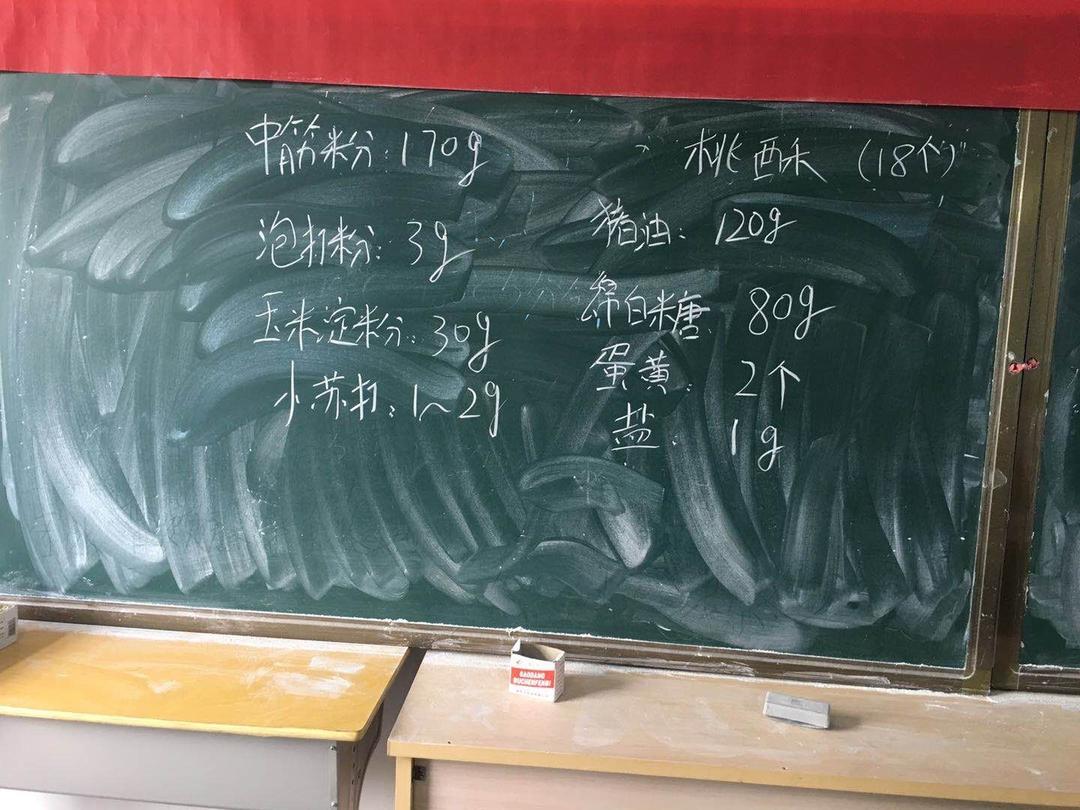 桃酥 (18个)
中筋粉: 170g
泡打粉: 3g
玉米淀粉: 30g
小苏打: 1~2g
猪油: 120g
绵白糖: 80g
蛋黄: 2个
盐: 1g
GAODANG
WUCHENFENBI